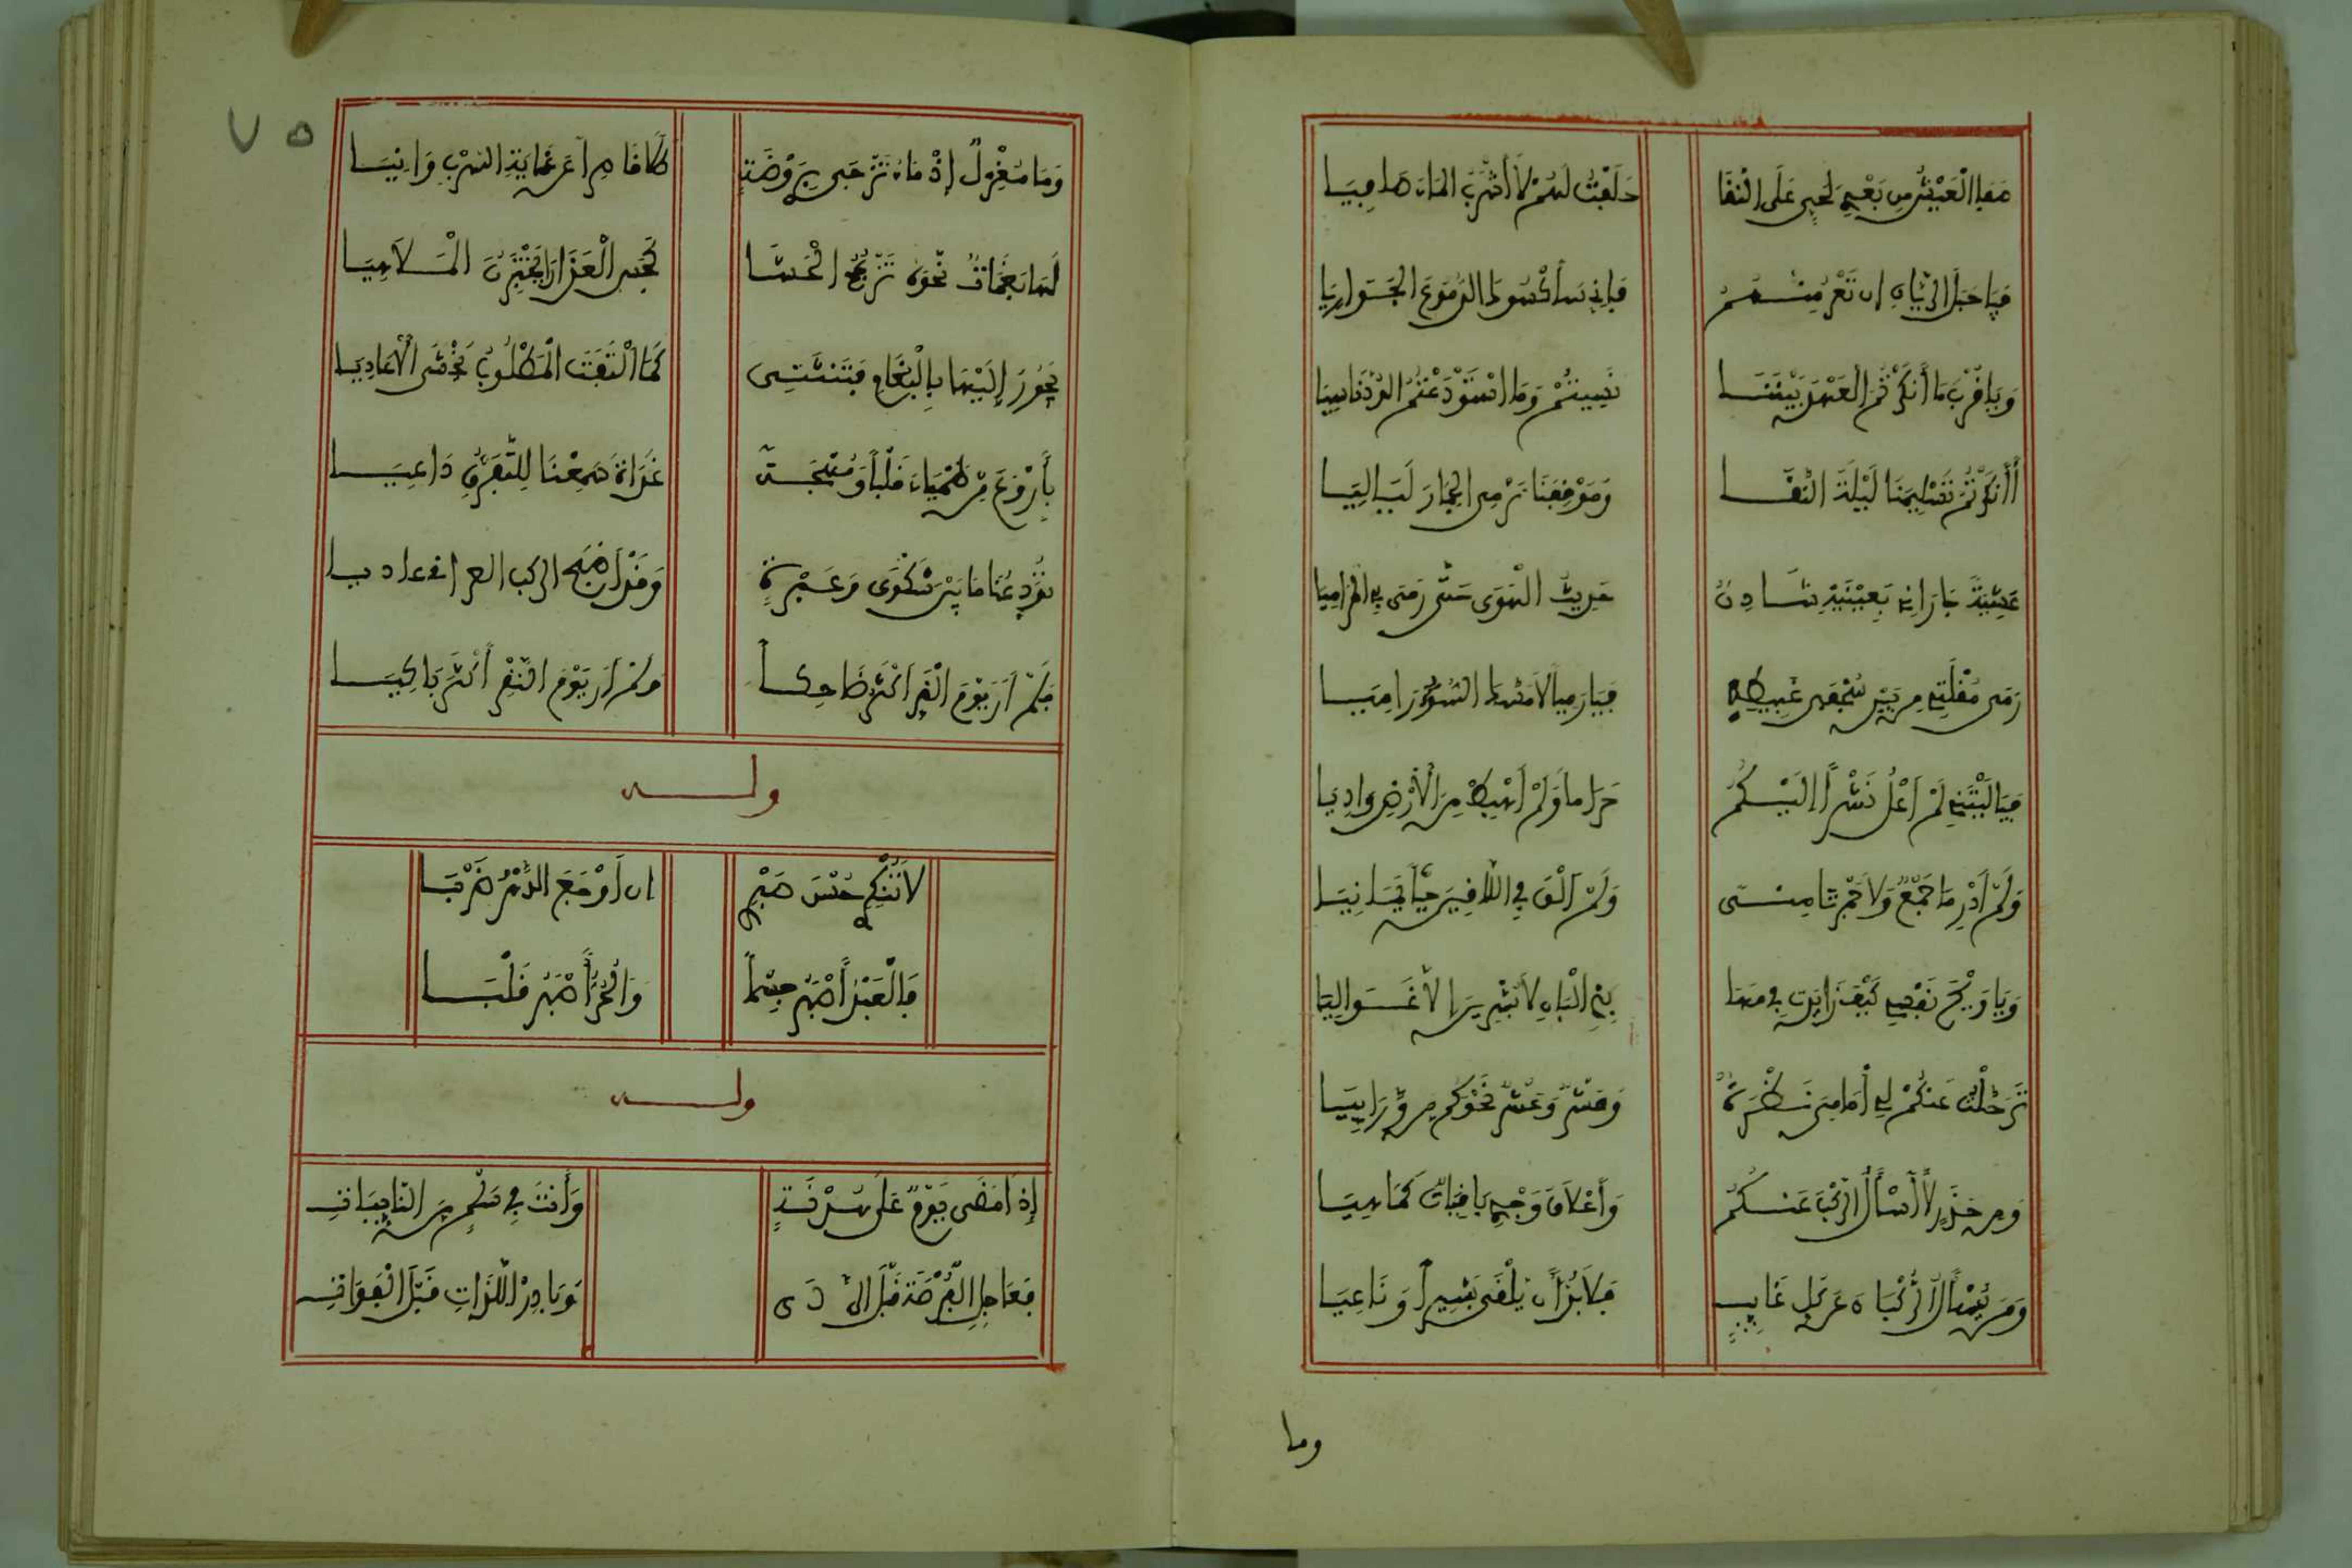 صفا العيش من بعدي لحي على النقا حلفت لهم لا أشرب الماء صافيا
فيا جبل الريان ان تعر منهم فإني سأكسوك الدموع الجواريا
ويا قرب ما أنكرتم العهد بيننا نسيتم وما استودعتم الود ناسيا
أأنكرتم تسليمنا ليلة النقا وموقفنا نرمي الجمار لياليا
عشية جاراني بعينيه شادن حديث الهوى حتى رمى بي المراميا
رمى مقلتي من بين سجفي غبيطه فيا راميا لا مسك السوء راميا
فيا ليتني لم أعل نشزا إليكم حراما ولم أهبط من الأرض واديا
ولم أدر ما جمع ولا جمرتا منى ولم ألق في اللاقين حيا يمانيا
ويا ويح نفسي كيف زايدت في مها بذي البان لا يشرين إلا غواليا
ترحلت عنكم لي أمامي نظرة وعشر وعشر نحوكم من ورائيا
ومن حذر لا أسأل الركب عنكم وأعلاق وجدي باقيات كما هيا
ومن يسأل الركبان عن كل غايب فلا بد أن يلقى بشيرا وناعيا
وما
٧٥
وما مغزل إذ ماء تزجي بروضة طلا قاصرا عن غاية السرب وانيا
لها بغمات نحوه تزعج الحشا تجس العذارى يختبرن الملاهيا
يحور إليها بالبغام فتنثني كما التفت المطلوب يخشى الأعاديا
بأروع من ظمياء قلبا ومهجة غداة سمعنا للتفرق داعيا
تودعنا ما بين شكوى وعبرة وقد أصبح الركب العراقي غاديا
فلم أر يوم النفر أكثر ضاحكا ولم أر يوم النفر أكثر باكيا
وله
لا تنكري حسن صبري ان أوجع الدهر ضربا
فالعبد أصبر جسما والحر أصبر قلبا
وله
إذا مضى يوم على هدنة وأنت في سلم من النايبات
فعاجل الفرصة قبل الردى وبادر اللذات قبل الفوات